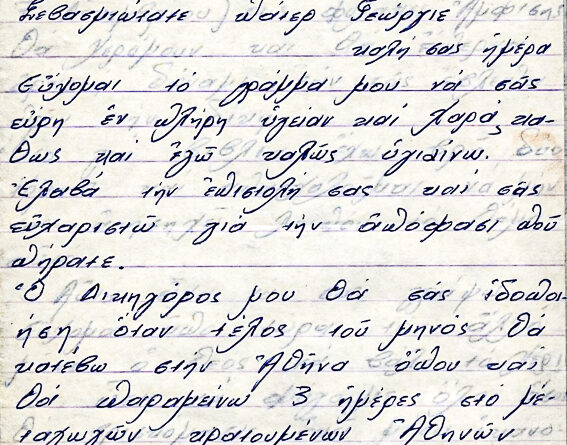 Σεβασμιώτατε πάτερ Γεώργιε
καλή σας ἡμέρα
Εὔχομαι τό γράμμα μου νά σᾶς
εὕρη ἐν πλήρη ὑγείαν καί χαρά, κα-
θως καί ἐγῶ καλῶς ὑγιαίνω.
Ἔλαβα τήν ἐπιστολή σας καί σᾶς
εὐχαριστῶ γιά τήν ἀπόφασι ποῦ
πήρατε.
Ὁ Δικηγόρος μου θά σάς ἰδοποι-
ήση ὅταν τέλος τοῦ μηνός θά
κατέβω στην Ἀθῆνα ὅπου καί
θά παραμείνω 3 ἡμέρες στό με-
ταγωγῶν κρατουμένων Ἀθηνῶν